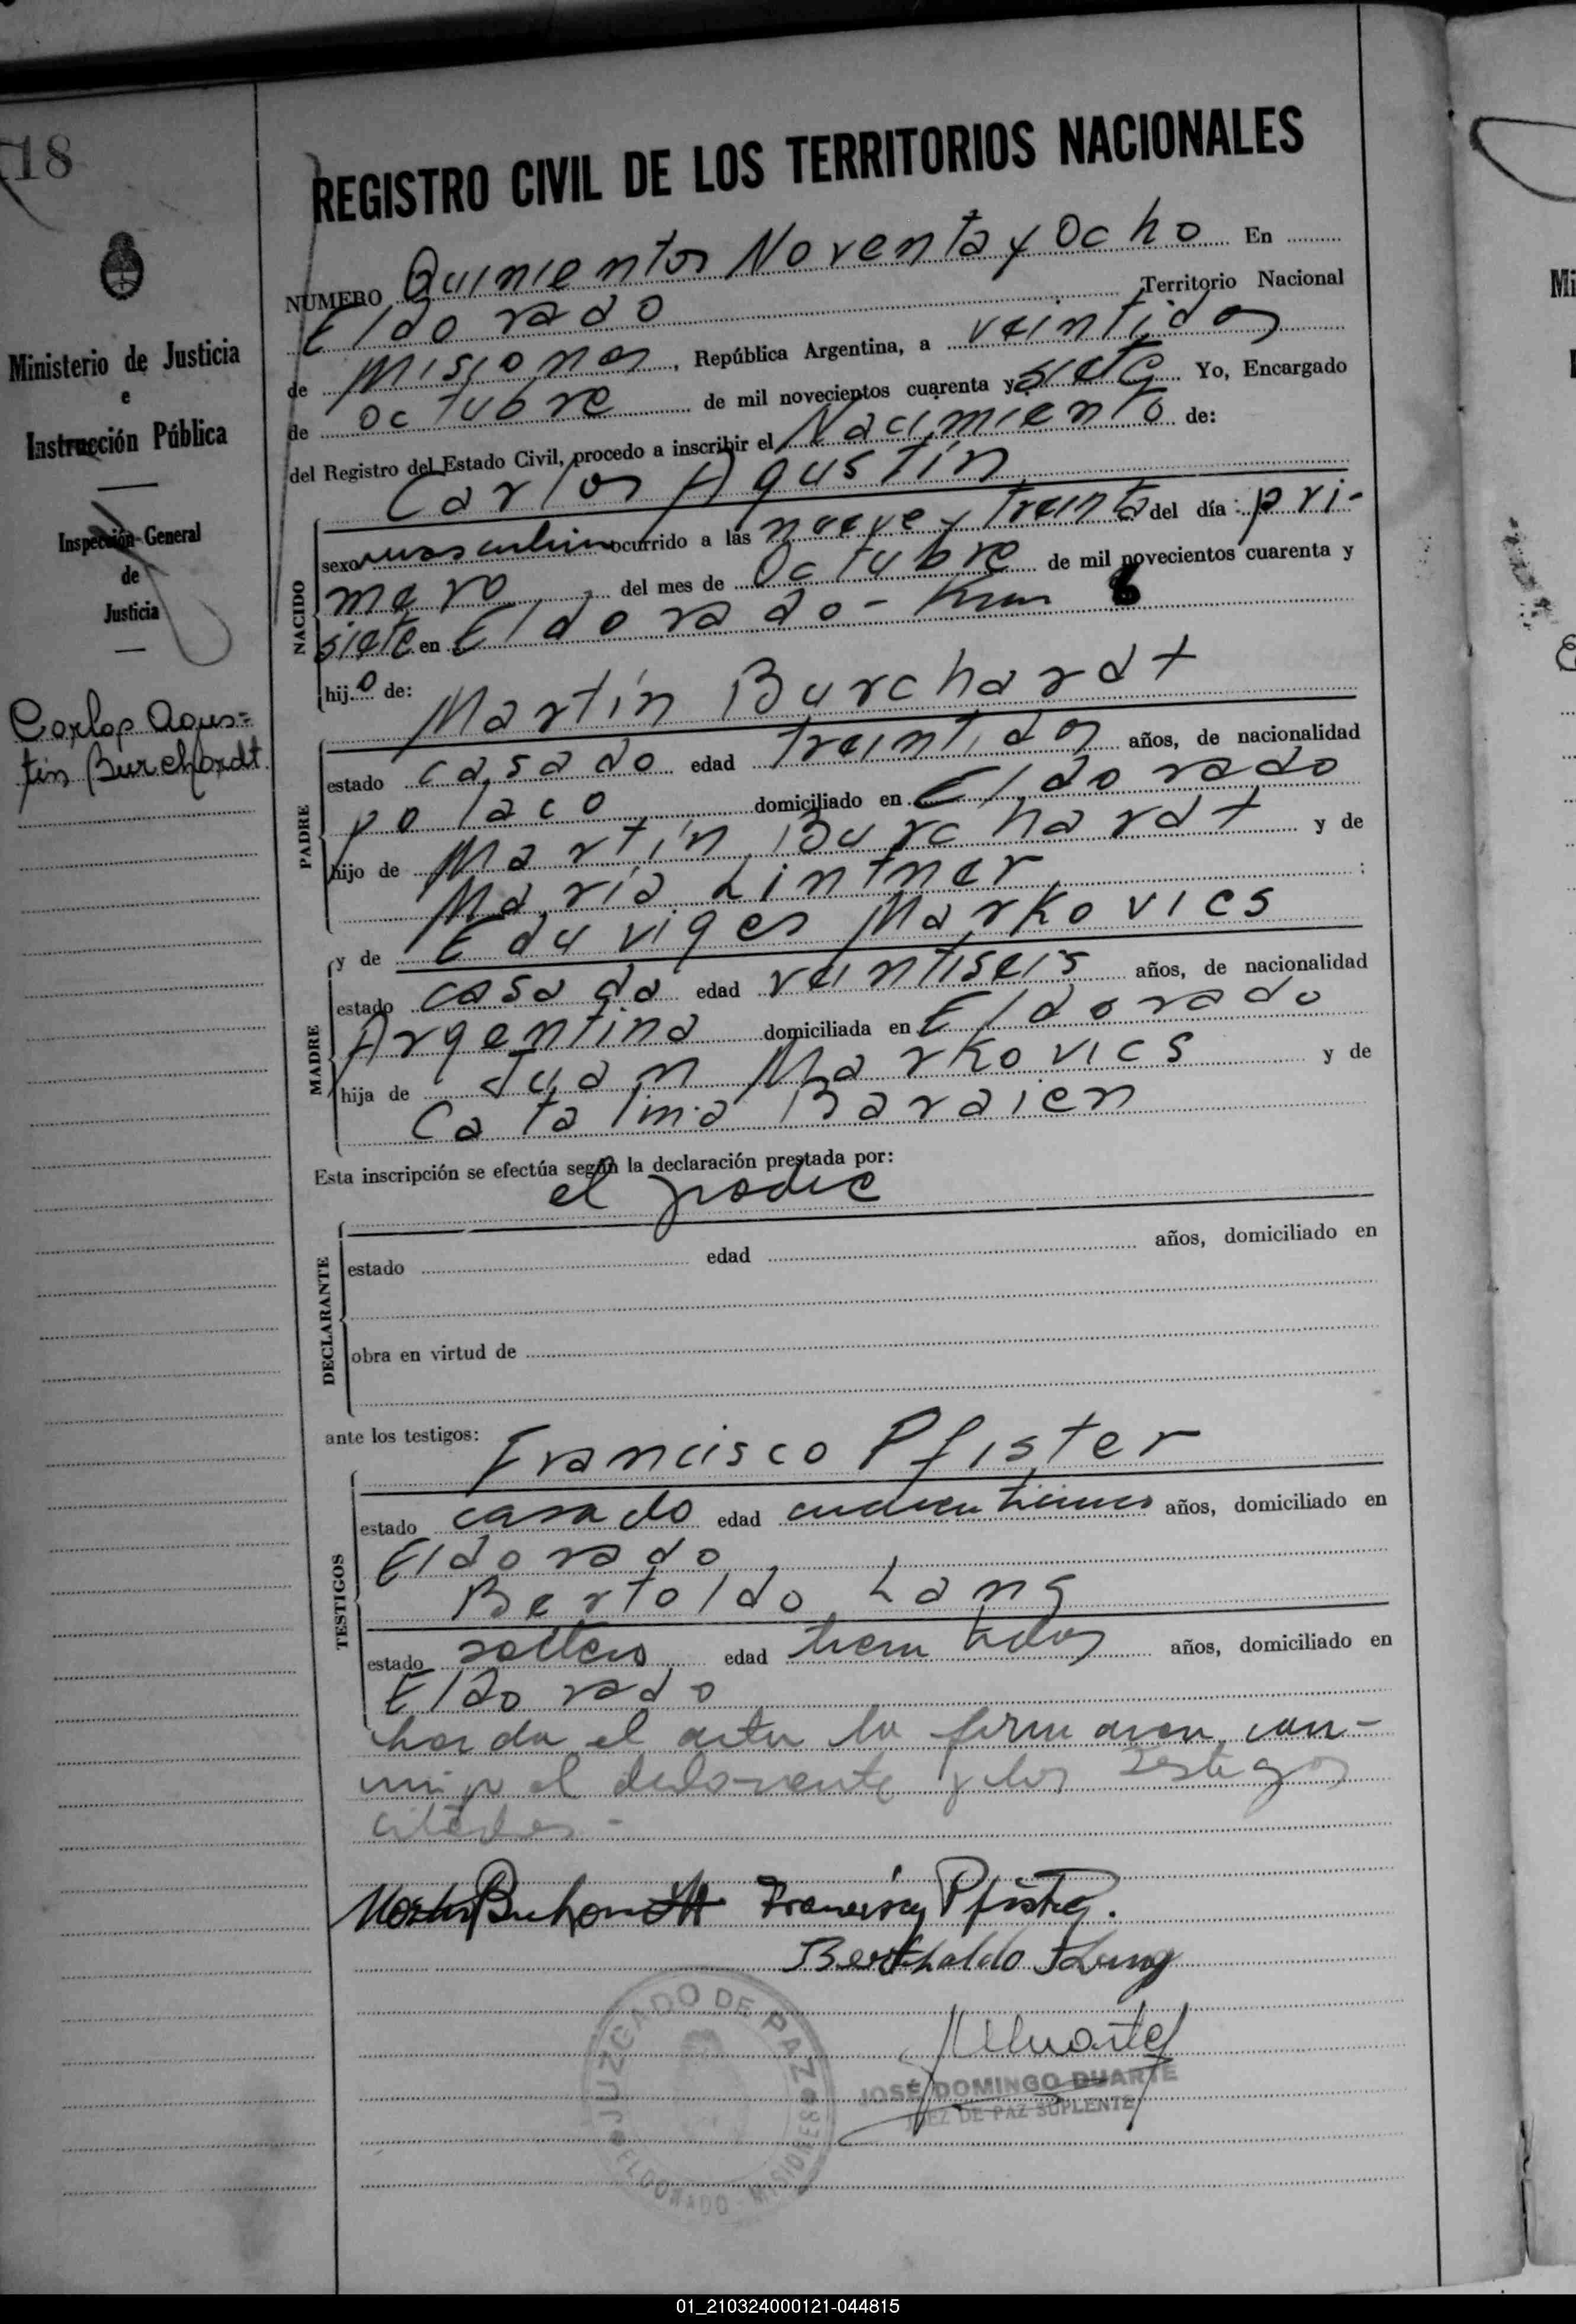 18
Ministerio de Justicia
e
Instrucción Pública
Inspección General
de
Justicia
Carlos Agus=
tin Burchardt
REGISTRO CIVIL DE LOS TERRITORIOS NACIONALES
NUMERO Quinientos Noventa y Ocho En
Eldorado Territorio Nacional
de Misiones, República Argentina, a veintidos
de octubre de mil novecientos cuarenta y siete Yo, Encargado
del Registro del Estado Civil, procedo a inscribir el Nacimiento de:
Carlos Agustín
NACIDO
sexo masculino ocurrido a las nueve y treinta del día: pri-
mero del mes de Octubre de mil novecientos cuarenta y
siete en Eldorado - Km 8
hijo de: Martín Burchardt
PADRE
estado casado edad treintidos años, de nacionalidad
polaco domiciliado en Eldorado
hijo de Martín Burchardt y de
María Lintner ;
y de Eduviges Markovics
MADRE
estado casada edad veintiseis años, de nacionalidad
Argentina domiciliada en Eldorado
hija de Juan Markovics y de
Catalina Baraien
Esta inscripción se efectúa según la declaración prestada por:
el padre
DECLARANTE
estado edad años, domiciliado en
obra en virtud de
ante los testigos: Francisco Pfister
TESTIGOS
estado casado edad años, domiciliado en
Eldorado
Bertoldo Lang
estado soltero edad treintidos años, domiciliado en
Eldorado
el acta la firmaron con-
migo el declarante y los testigos
citados -
Francisco Pfister.
Berthaldo Lang
JUZGADO DE PAZ
ELDORADO - MISIONES
JOSÉ DOMINGO DUARTE
JUEZ DE PAZ SUPLENTE
Mi
01_210324000121-044815